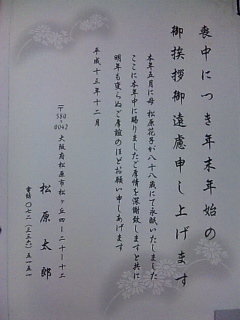 喪中につき年末年始の
御挨拶御遠慮申し上げます
本年五月に母 松原花子が八十八歳にて永眠いたしました
ここに本年中に賜りましたご厚情を深謝致しますと共に
明年も変らぬご厚誼のほどお願い申しあげます
平成十三年十二月
〒580-0042
大阪府松原市松ヶ丘四-二十-十二
松原太郎
電話〇七二(三三六)五一五一